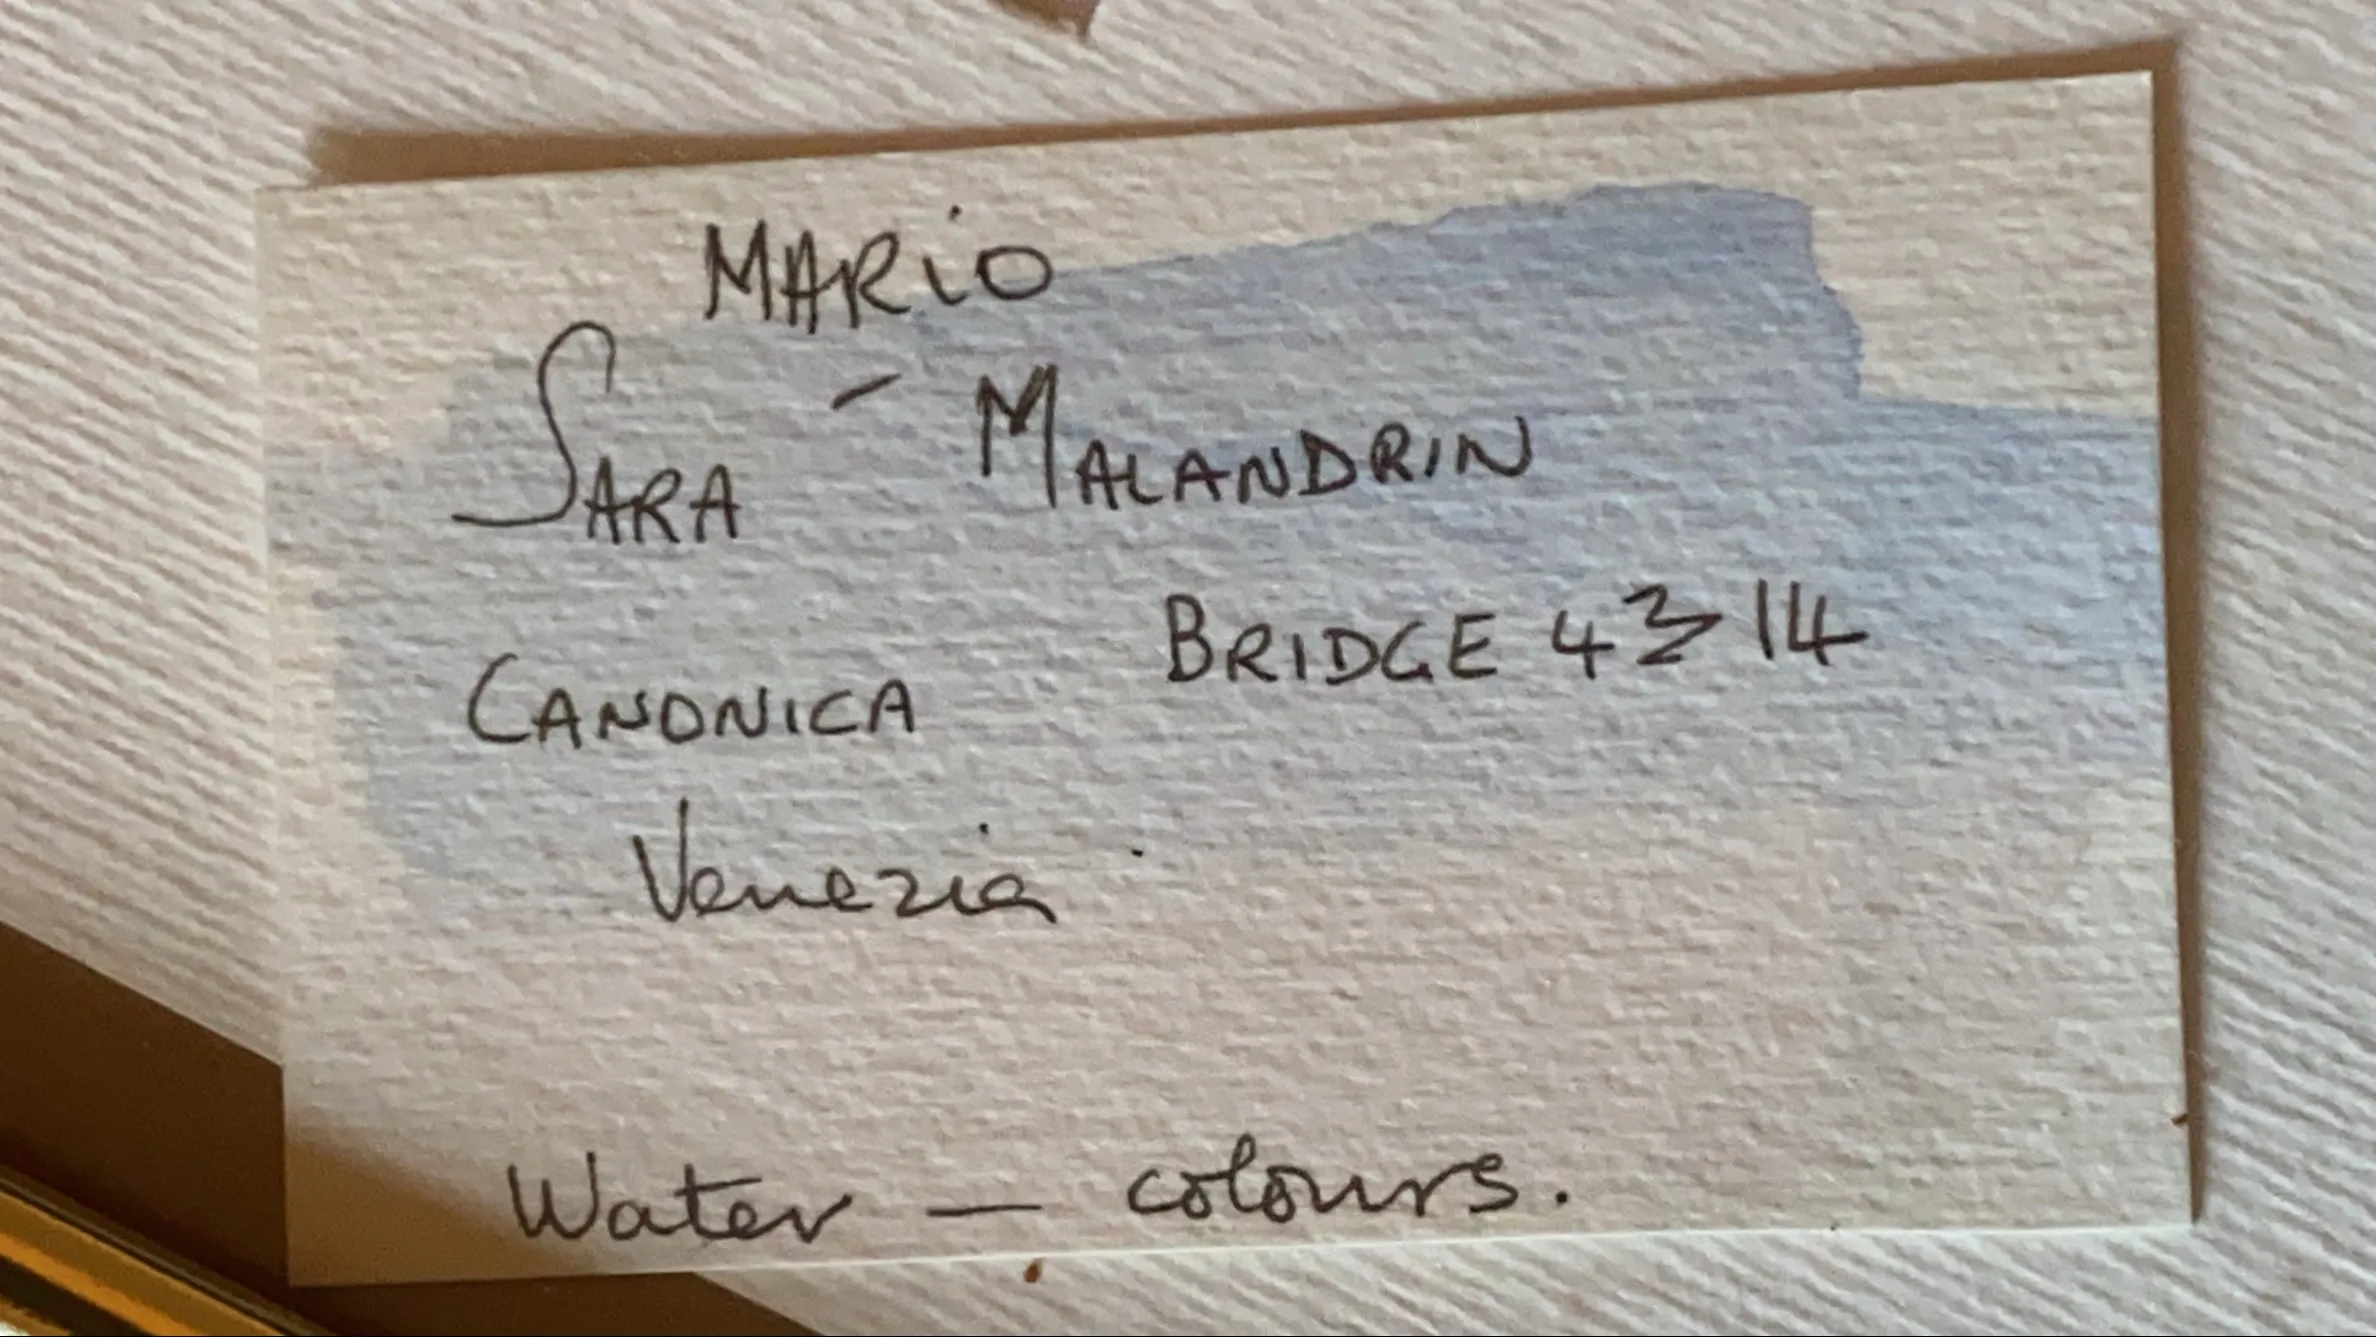 MARiO
SARA - MALANDRIN
CANONICA BRIDGE 4314
Venezia
Water — colours.